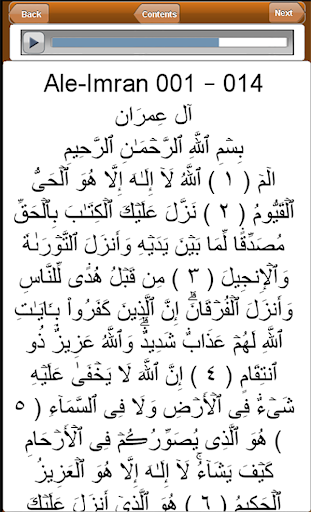 Back
Contents
Next
Ale-Imran 001 - 014
آل عِمرَان
بِسۡمِ ٱللَّهِ ٱلرَّحۡمَـٰنِ ٱلرَّحِيمِ
الٓمٓ ( ١ ) ٱللَّهُ لَآ إِلَـٰهَ إِلَّا هُوَ ٱلۡحَىُّ
ٱلۡقَيُّومُ ( ٢ ) نَزَّلَ عَلَيۡكَ ٱلۡكِتَـٰبَ بِٱلۡحَقِّ
مُصَدِّقً۬ا لِّمَا بَيۡنَ يَدَيۡهِ وَأَنزَلَ ٱلتَّوۡرَٮٰةَ
وَٱلۡإِنجِيلَ ( ٣ ) مِن قَبۡلُ هُدً۬ى لِّلنَّاسِ
وَأَنزَلَ ٱلۡفُرۡقَانَ‌ۗ إِنَّ ٱلَّذِينَ كَفَرُواْ بِـَٔايَـٰتِ
ٱللَّهِ لَهُمۡ عَذَابٌ۬ شَدِيدٌ۬‌ۗ وَٱللَّهُ عَزِيزٌ۬ ذُو
ٱنتِقَامٍ ( ٤ ) إِنَّ ٱللَّهَ لَا يَخۡفَىٰ عَلَيۡهِ
شَىۡءٌ۬ فِى ٱلۡأَرۡضِ وَلَا فِى ٱلسَّمَآءِ ( ٥
) هُوَ ٱلَّذِى يُصَوِّرُڪُمۡ فِى ٱلۡأَرۡحَامِ
كَيۡفَ يَشَآءُ‌ۚ لَآ إِلَـٰهَ إِلَّا هُوَ ٱلۡعَزِيزُ
ٱلۡحَكِيمُ ( ٦ ) هُوَ ٱلَّذِىٓ أَنزَلَ عَلَيۡكَ